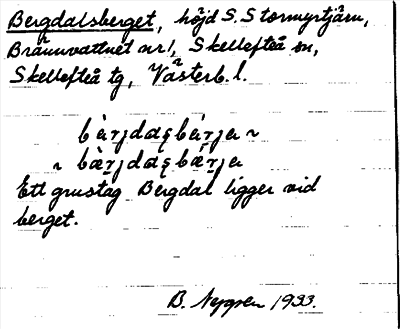 Bergdalsberget, höjd S. Stormyrtjärn,
Brännvattnet nr 1, Skellefteå sn,
Skellefteå tg, Västerb. l.
Ett grustag Bergdal ligger vid
berget.
B. Nygren 1933.